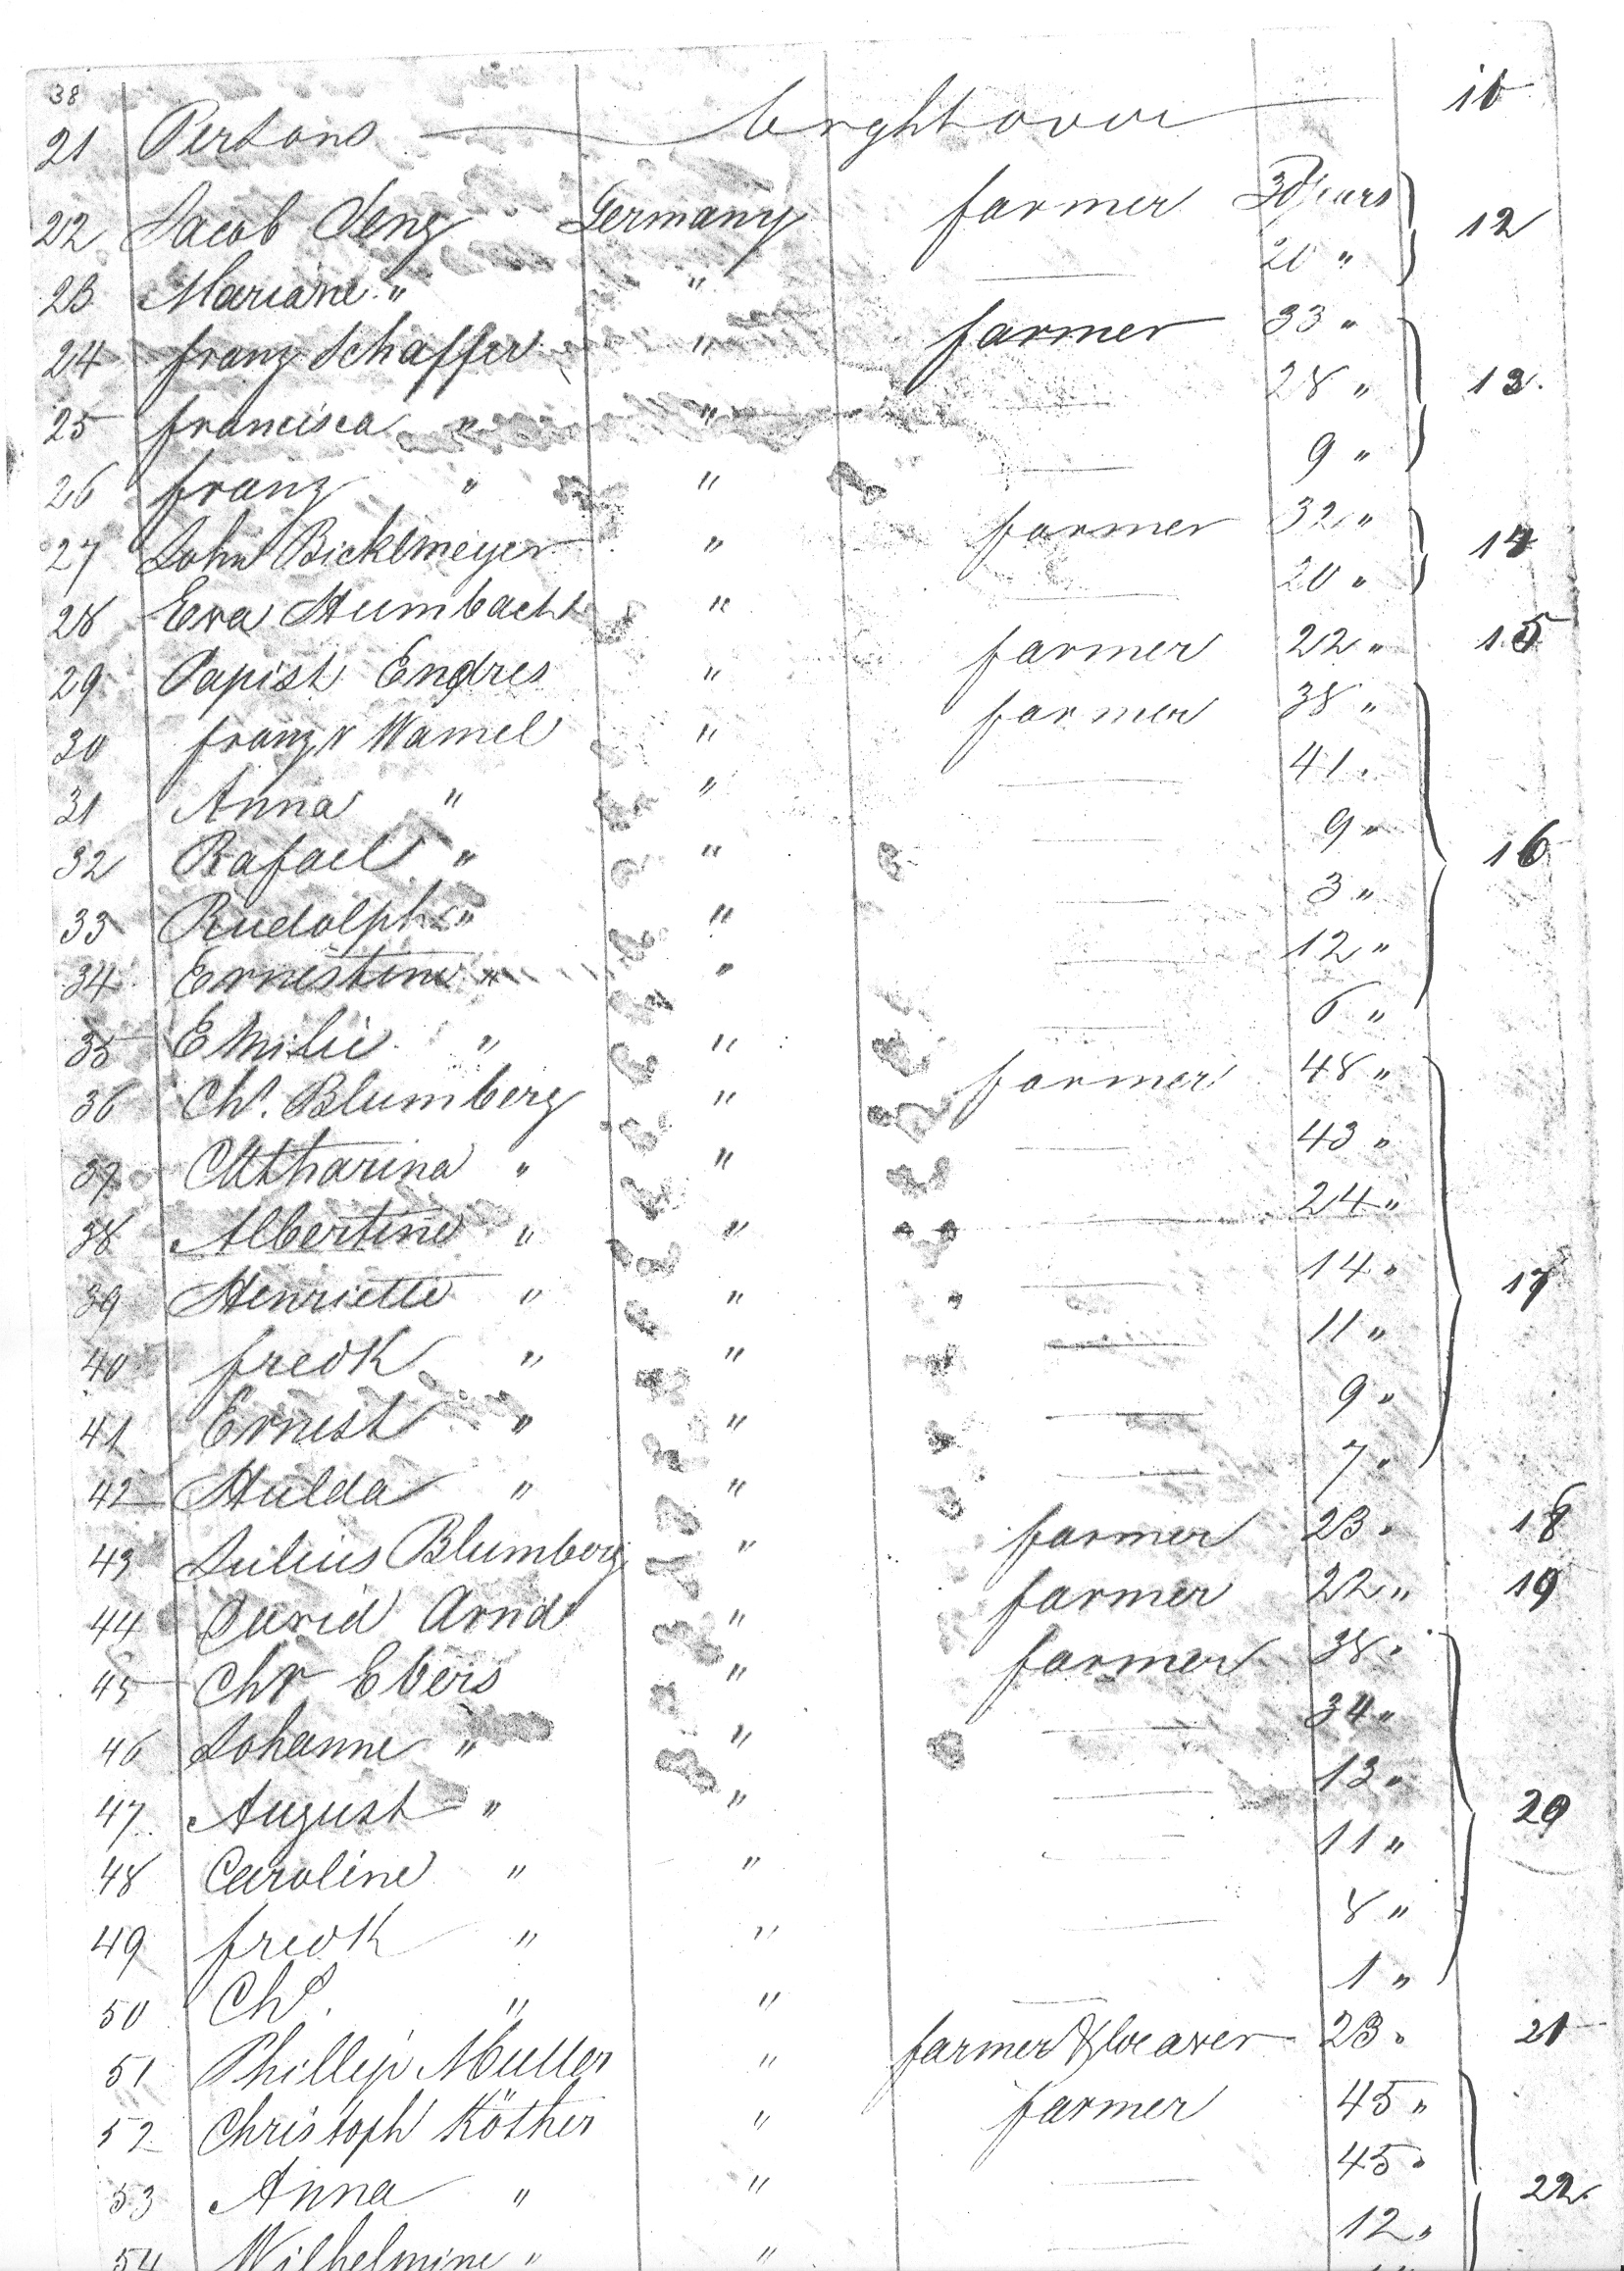 38
21 Persons brght over 11
22 Jacob Seng Germany farmer 30 years 12
23 Mariane " " — 20 "
24 franz Schaffer " farmer 33 "
25 francisca " " — 28 " 13.
26 franz " " — 9 "
27 John Bickelmeyer " farmer 32 " 14
28 Eva Humbacht " — 20 "
29 Papist Endres " farmer 22 " 15
30 franz v Wamel " farmer 38 "
31 Anna " " — 41 "
32 Rafael " " — 9 " 16
33 Rudolph " " — 3 "
34 Ernestine " " — 12 "
35 Emilie " " — 6 "
36 Chs. Blumberg " farmer 48 "
37 Catharina " " — 43 "
38 Albertine " " — 24 "
39 Henriette " " — 14 " 17
40 fredk " " — 11 "
41 Ernest " " — 9 "
42 Hulda " " — 7 "
43 Julius Blumberg " farmer 23 " 18
44 David Arnd " farmer 22 " 19
45 Chr Ebers " farmer 38 "
46 Johanne " " — 34 "
47 August " " — 13 " 20
48 Caroline " " — 11 "
49 fredk " " — 8 "
50 Chs. " " — 1 "
51 Phillip Muller " farmer & weaver 23 " 21
52 Christoph Köther " farmer 45 "
53 Anna " " — 45 " 22
54 Wilhelmine " " — 12 "